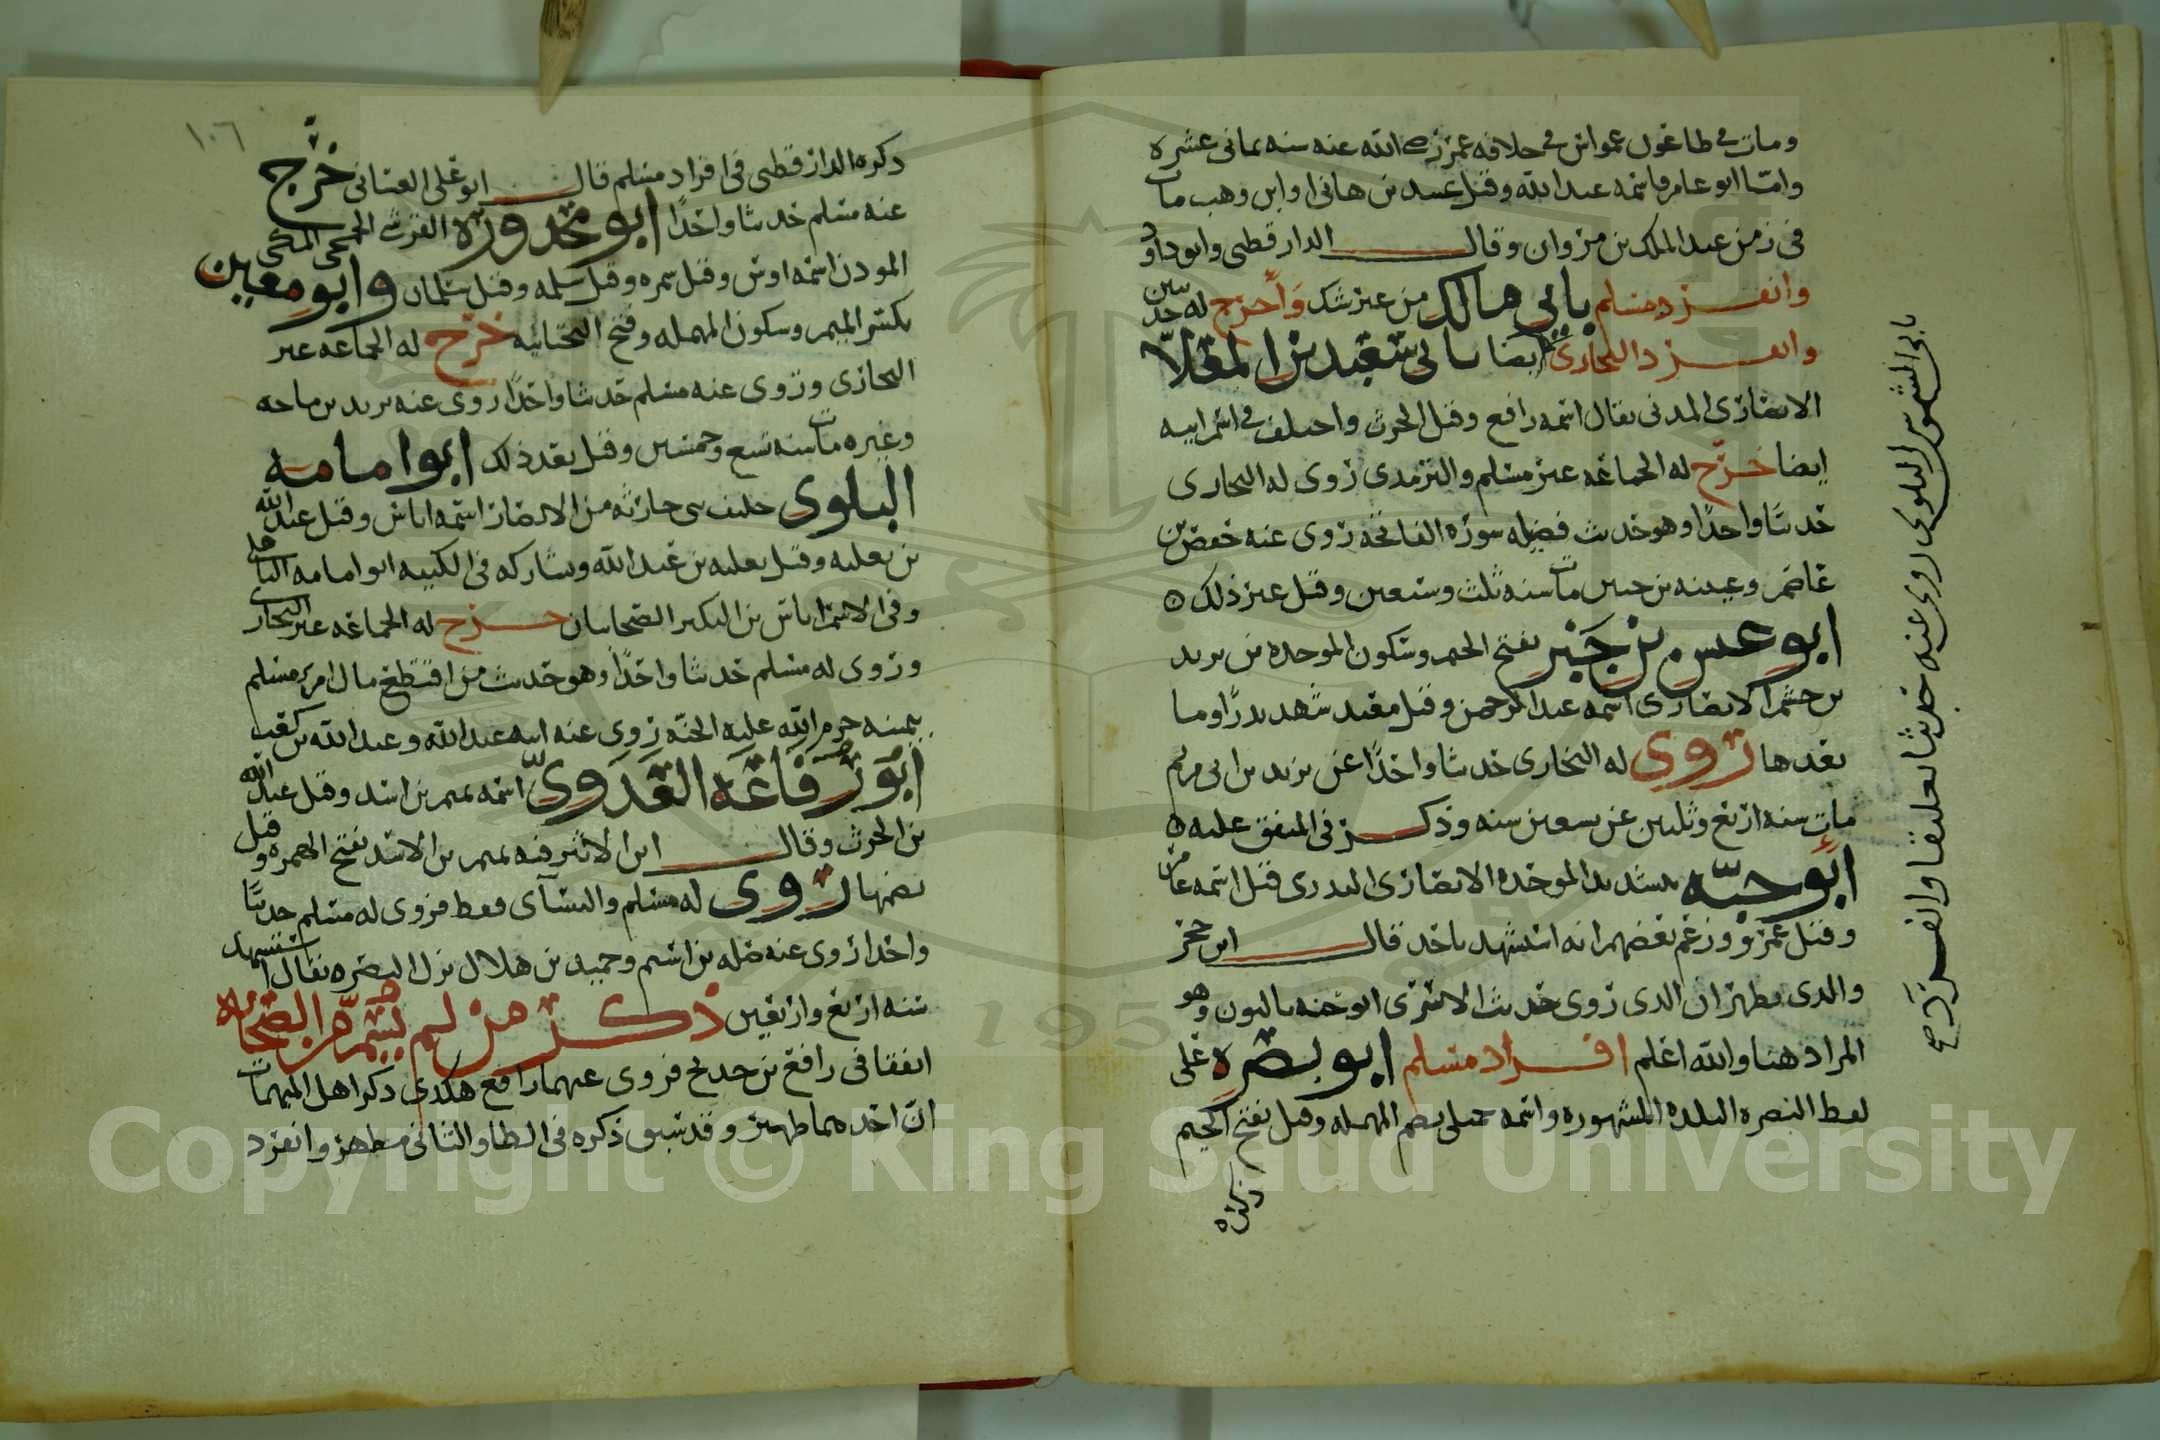 ومات في طاعون عمواس في خلافه عمر رضي الله عنه سنه ثماني عشره
واما ابو عامر فاسمه عبد الله وقيل عبيد بن هانى او ابن وهب مات
في زمن عبد الملك بن مروان وقال الدارقطني وابو داود
وانفرد مسلم بابي مالك من غير شك وأخرج له حديثين
وانفرد البخاري ايضا بابي سعيد بن المعلا
الانصاري المدني يقال اسمه رافع وقيل الحرث واختلف في اسم ابيه
ايضا خرج له الجماعه غير مسلم والترمذي روى له البخاري
حديثا واحدا وهو حديث فضيله سوره الفاتحه روى عنه حفص بن
عاصم وعبيد بن حنين مات سنه ثلث وسبعين وقيل غير ذلك ٥
ابو عبس بن جبر بفتح الجيم وسكون الموحده بن يزيد
بن جشم الانصاري اسمه عبد الرحمن وقيل معبد شهد بدرا وما
بعدها روى له البخاري حديثا واحدا عن يزيد بن ابي مريم
مات سنه اربع وثلثين عن سبعين سنه وذكر في المتفق عليه ٥
أبو حبه بتشديد الموحده الانصاري البدري قيل اسمه عامر
وقيل عمرو وزعم بعضهم انه استشهد باحد قال ابن حجر
والذي يظهر ان الذي روى حديث الاسرى ابو حنه بالنون وهو
المراد هنا والله اعلم افراد مسلم ابو بصره على
لفظ البصره البلده المشهوره واسمه حميل بضم المهمله وقيل بفتح الجيم
ذكره
بابي الشموس البلوي روى عنه حديثا تعليقا وانفرد صح
١٠٦
ذكره الدارقطني في افراد مسلم قال ابو علي الغساني خرج
عنه مسلم حديثا واحدا ابو محذوره القرشي الجمحي المكي
الموذن اسمه اوس وقيل سمره وقيل سلمه وقيل سلمان وابو معين
بكسر الميم وسكون المهمله وفتح التحتانيه خرج له الجماعه غير
البخاري وروى عنه مسلم حديثا واحدا روى عنه يزيد بن ماجه
وغيره مات سنه تسع وخمسين وقيل بعد ذلك ابو امامه
البلوي حليف بني حارثه من الانصار اسمه اياس وقيل عبد الله
بن ثعلبه وقيل ثعلبه بن عبد الله وشاركه في الكنيه ابو امامه الباهلي
وفي الاسم اياس بن البكير الصحابيان خرج له الجماعه غير البخاري
وروى له مسلم حديثا واحدا وهو حديث من اقتطع مال امرئ مسلم
بيمينه حرم الله عليه الجنه روى عنه ابنه عبد الله وعبد الله بن كعب
أبو رفاعه العدوي اسمه تميم بن اسد وقيل عبد الله
بن الحرث وقال ابن الاثير فيه تميم بن الاسد بفتح الهمزه وقيل
بضمها روى له مسلم والنسآى فقط فروى له مسلم حديثا
واحدا روى عنه صله بن اشيم وحميد بن هلال نزل البصره يقال استشهد
سنه اربع واربعين ذكر من لم يسم من الصحابه
اتفقا في رافع بن خديج فروى عنهما رافع هكذى ذكر اهل المبهمات
ان احدهما ظهير وقد سبق ذكره في الظا والثاني مظهر وانفرد